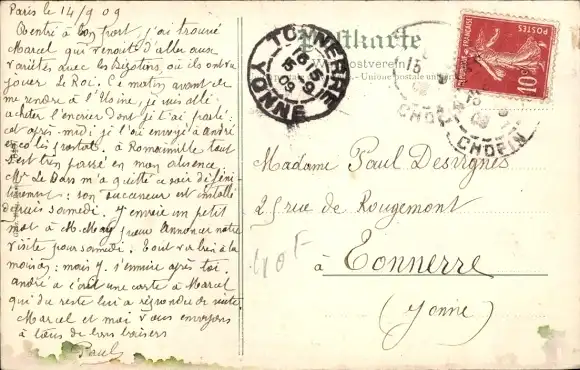 Paris le 14/9 09
Rentré à bon port, j'ai trouvé
Marcel qui venait d'aller aux
variétés avec les Bizotons, où ils ont vu
jouer Le Roi. Ce matin avant de
me rendre à l'Usine, je suis allé
acheter l'encrier dont je t'ai parlé;
cet après-midi je l'ai envoyé à André
en colis postal. à Romainville tout
s'est très bien passé en mon absence,
Mr Le Bars m'a quitté ce soir défini
tivement; son successeur est installé
depuis samedi. J'envoie un petit
mot à M. pour annoncer notre
visite pour samedi. Tout va bien à la
maison; mais j' s'ennuie après toi.
andré a écrit une carte à Marcel
qui du reste lui a répondu de suite
Marcel et moi vous envoyons
à tous de bons baisers
Paul
Postkarte
Weltpostverein
Union postale univer
TONNERRE
YONNE
15-9
09
POSTES
10
CHOPIN
Madame Paul Desvignes
25 rue de Rougemont
à Tonnerre
(Yonne)
40F